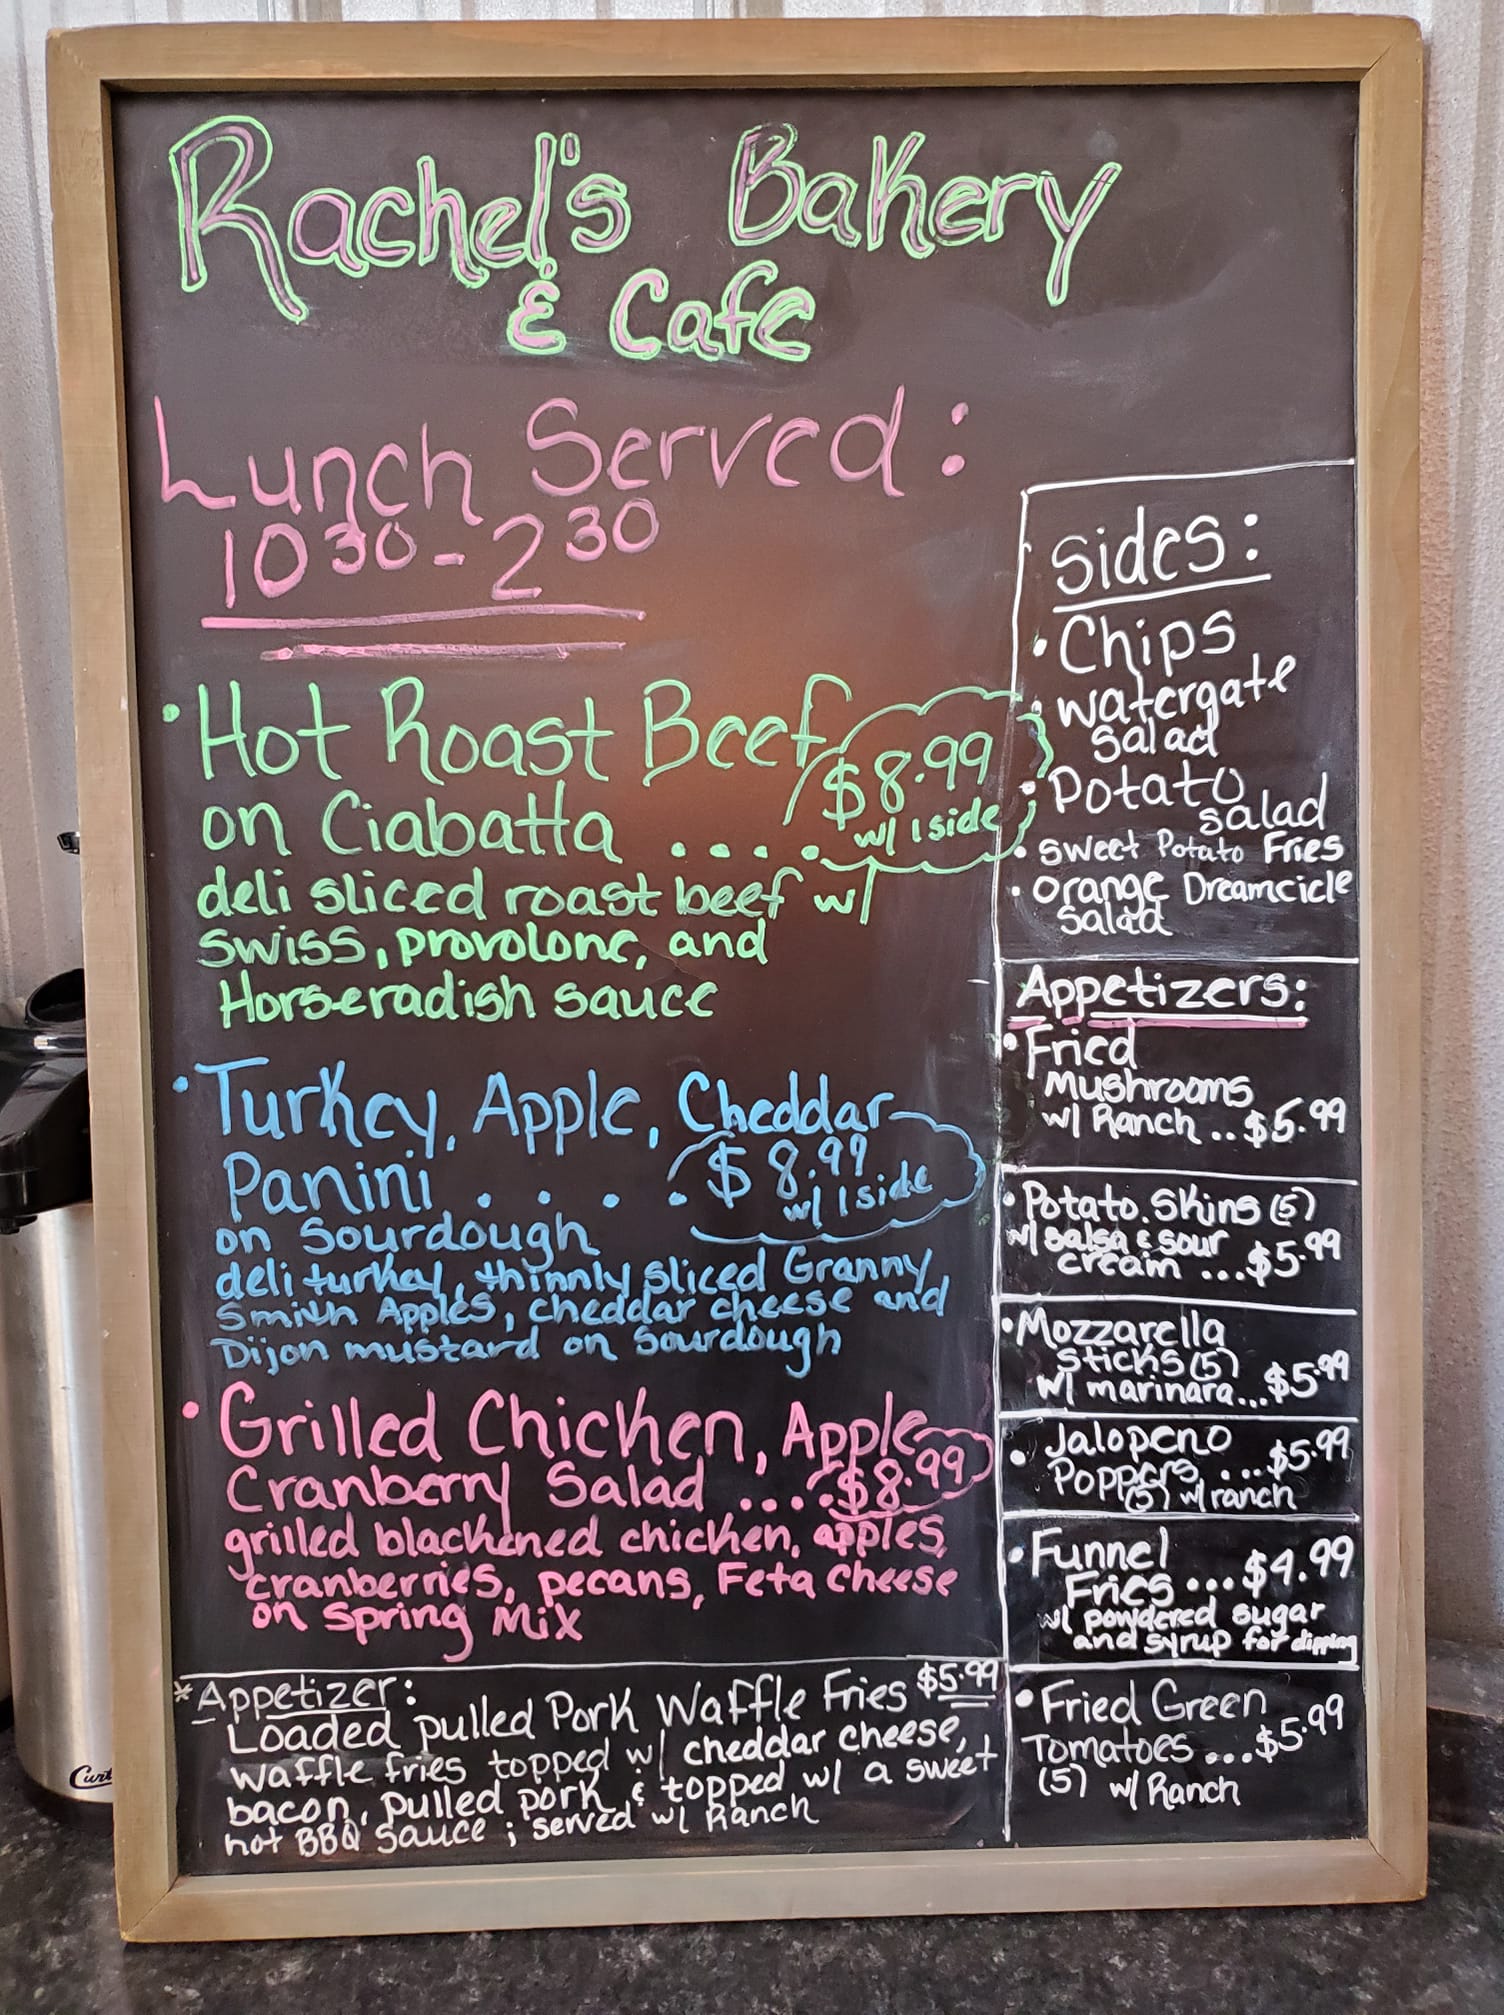 Rachel's Bakery
& Cafe
Lunch Served:
10 30 - 2 30
• Hot Roast Beef
on Ciabatta . . . . $8.99
w/ 1 side
deli sliced roast beef w/
swiss, provolone, and
Horseradish sauce
• Turkey, Apple, Cheddar
Panini . . . . $8.99
w/ 1 side
on Sourdough
deli turkey, thinnly sliced Granny
Smith Apples, cheddar cheese and
Dijon mustard on Sourdough
• Grilled Chicken, Apple
Cranberry Salad .... $8.99
grilled blackened chicken, apples,
cranberries, pecans, Feta cheese
on Spring Mix
* Appetizer:
Loaded pulled Pork Waffle Fries $5.99
waffle fries topped w/ cheddar cheese,
bacon, pulled pork & topped w/ a sweet
hot BBQ sauce ; served w/ Ranch
Sides:
• Chips
• Watergate
Salad
• Potato
Salad
• Sweet Potato Fries
• Orange Dreamcicle
Salad
Appetizers:
• Fried
Mushrooms
w/ Ranch .. $5.99
• Potato Skins (5)
w/ salsa & sour
cream ... $5.99
• Mozzarella
Sticks (5)
w/ marinara... $5.99
• Jalopeno
Poppers ... $5.99
(5) w/ ranch
• Funnel
Fries ... $4.99
w/ powdered sugar
and syrup for dipping
• Fried Green
Tomatoes ... $5.99
(5) w/ Ranch
Curt